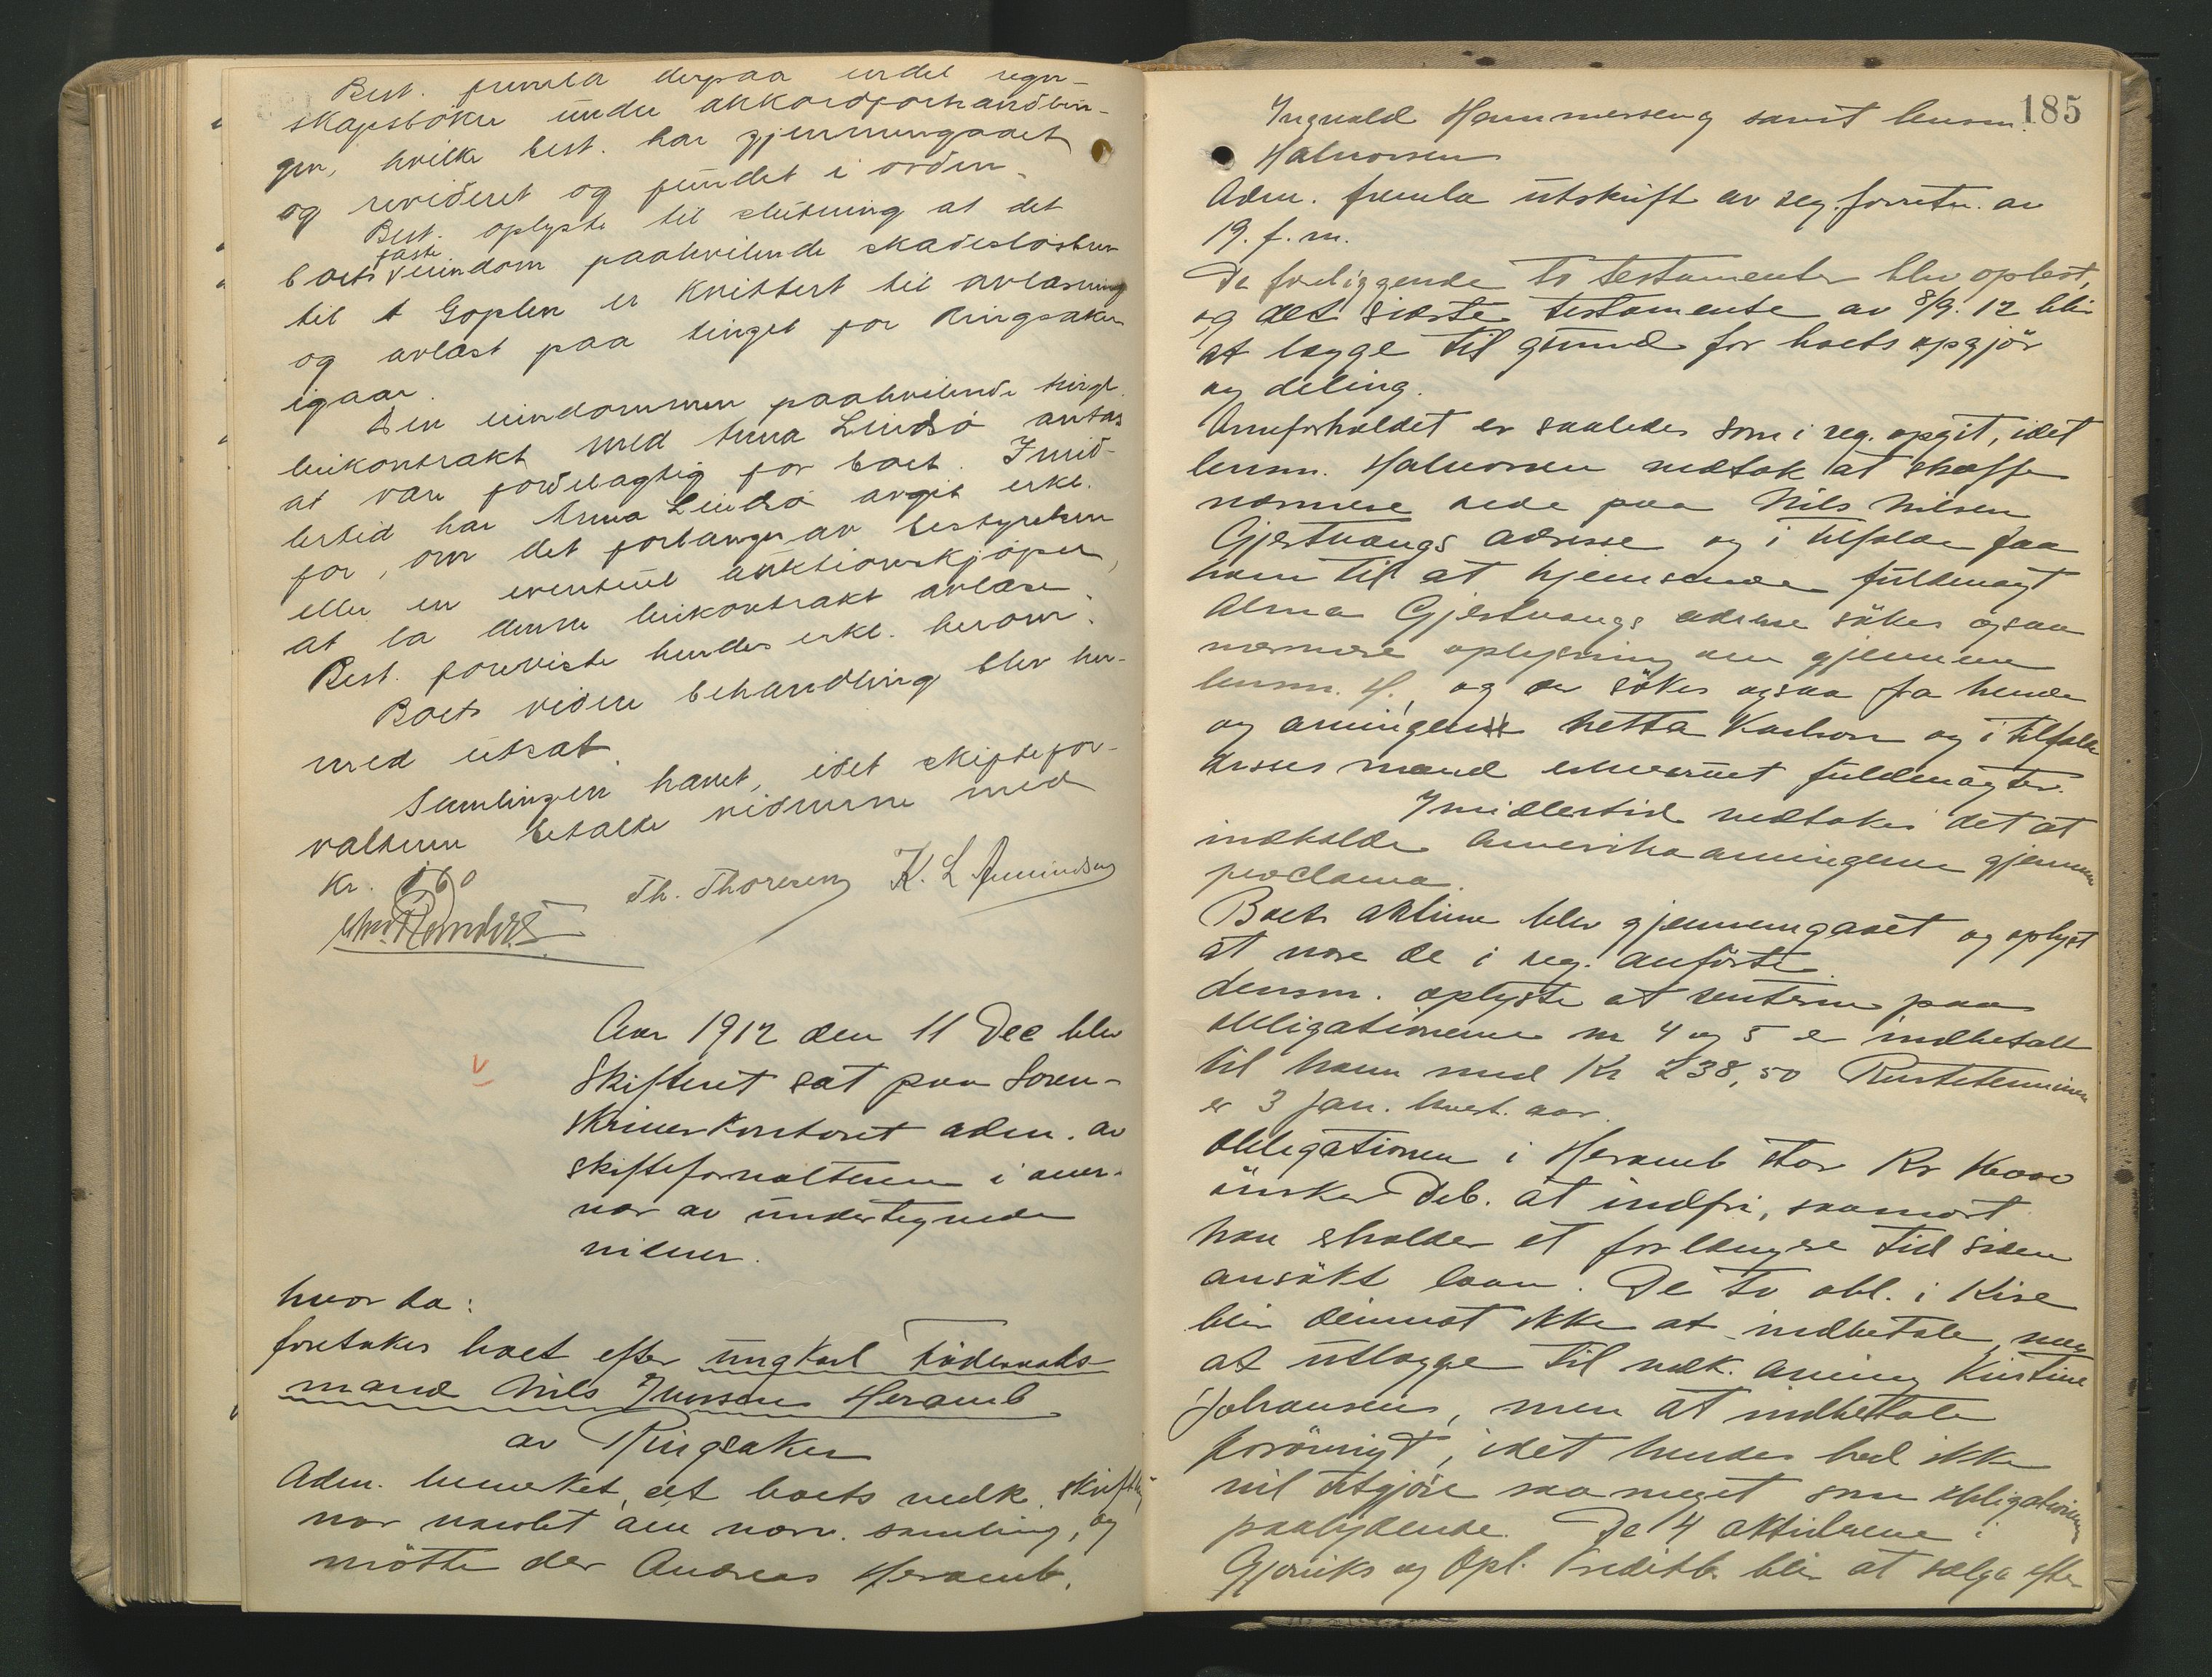 Best. fremla derpaa endel regn-
skapsböker under akkordforhandlin-
gen, hvilke best. har gjennemgaaet
og revideret og fundet i orden.
Best. oplyste til slutning at det
boets faste eiendom paahvilende skadeslösbrev
til A Goplen er kvittert til avlæsning
og avlæst paa tinget for Ringsaker
igaar.
Den eiendommen paahvilende tingl.
leiekontrakt med Anna Lindsö antas
at være fordelagtig for boet. Imid-
lertid har Anna Lindsö avgit erkl.
for, om det forlanges av bestyrelsen
eller en eventuel auktionskjöper,
at la denne leiekontrakt avlæse.
Best. foreviste hendes erkl. herom.
Boets videre behandling blev her-
med utsat.
Samlingen hævet, idet skiftefor-
valteren betalte vidnerne med
Kr. 1 60
Th. Thoresen K. L. Amundsen
Aar 1912 den 11 Dec blev
Skifteret sat paa Soren-
skriverkontoret adm. av
skifteforvalteren i over-
vær av undertegnede
vidner.
hvor da:
foretokes boet efter ungkarl föderaads-
mand Nils Iversen Heramb
av Ringsaker
Adm. bemerket, at boets vedk. skiftet
var varslet om nærv. samling, og
mötte der Andreas Heramb,
185
Ingvald Hammerseng samt lensm.
Halvorsen
Adm. fremla utskrift av reg. forretn. av
19. f. m.
De foreliggende to testamenter blev oplæst,
og det sidste testamente av 8/9. 12 blir
at lægge til grund for boets opgjör
og deling.
Arveforholdet er saaledes som i reg. opgit, idet
lensm. Halvorsen vedtok at skaffe
nærmere rede paa Nils Nilsen
Gjestvangs adresse og i tilfælde faa
ham til at hjemsende fuldmagt
Alma Gjestvangs adresse sökes ogsaa
nærmere oplysning om gjennem
lensm. H. og der sökes ogsaa fra hende
og arvingen Netta Karlson og i tilfælde
disses mænd erhvervet fuldmagter.
Imidlertid vedtokes det at
indkalde Amerikaarvingerne gjennem
proclama.
Boets aktiva blev gjennemgaaet og oplyst
at være de i reg. anförte.
Lensm. oplyste at renterne paa
obligationerne nr 4 og 5 er indbetalt
til ham med Kr 238,50 Renteterminen
er 3 jan. hvert aar.
Obligationen i Heramb stor Kr 16000
önsker Deb. at indfri, saasnart
han erholder et for længere tid siden
ansökt laan. De to obl. i Kise
blir derimot ikke at indbetale men
at utlægge til vedk. arving Kirstine
Johansens, men at indbetale
forövrigt, idet hendes lod ikke
vil utgjöre saa meget som obligationernes
paalydende. De 4 aktierne i
Gjöviks og Opl. Kreditb. blir at sælge efter